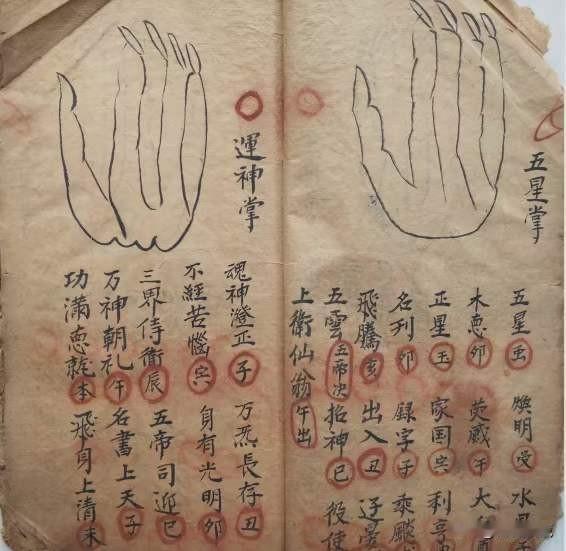 五星掌
五星 煥明 水
木惠卯 荧惑午 大
正星 家国寅 利亨
名刋卯 録字子 乘飈
飛騰亥 出入丑
五雲五帝决招神巳 役使
上衛仙翁午出
運神掌
魂神澄正子 万炁長存丑
不經苦惱寅 身有光明卯
三界侍衛辰 五帝司迎巳
万神朝礼午 名書上天子
功满惠就本 飛身上清未